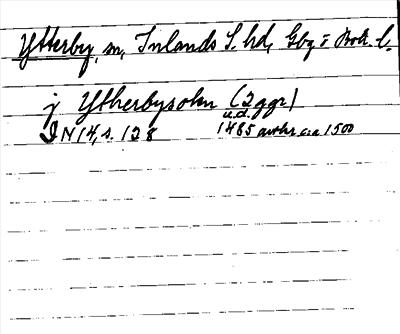 Ytterby, sn, Inlands S. hd, Gbg o Boh. l.
j Ytherbysokn (2 ggr)
u.d.
DN I 4, s. 128 1485 avskr ca 1500